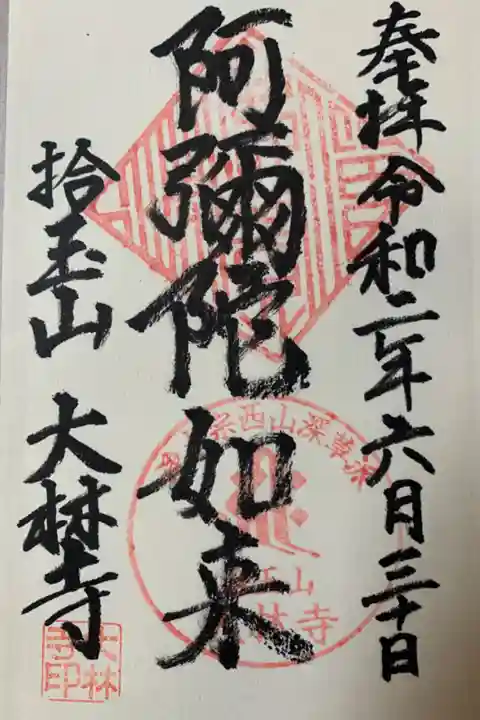 奉拝 令和二年 六月三十日
阿彌陀如来
拾玉山 大林寺
西山深草
山
林寺
大林寺印